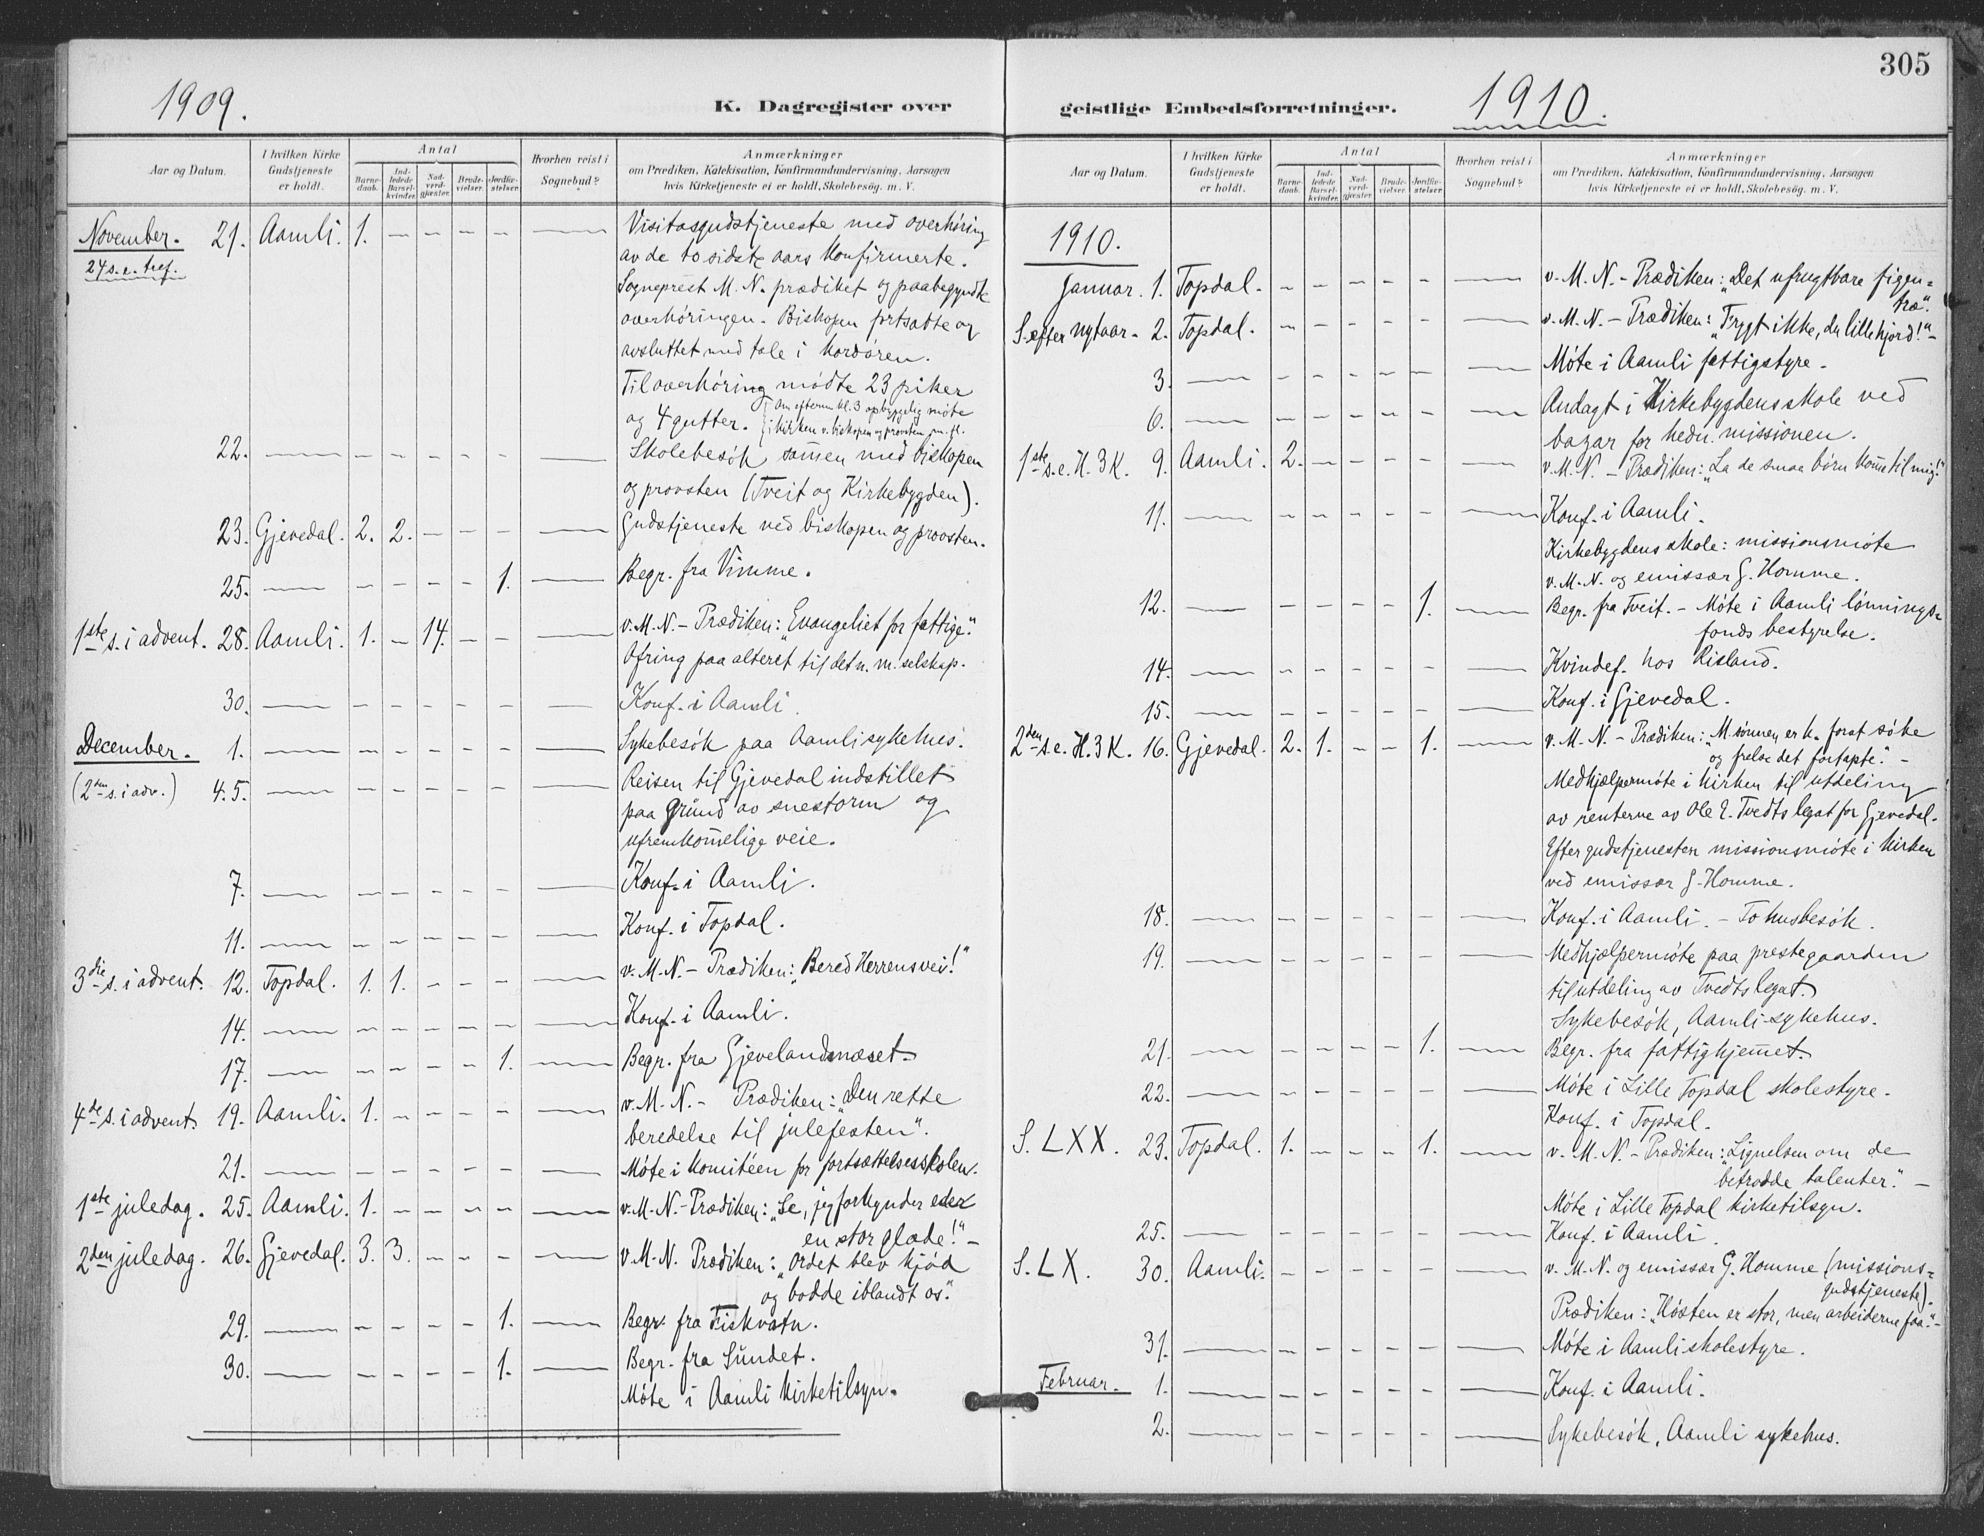 1909.
K. Dagregister over
Aar og Datum.
I hvilken Kirke Gudstjeneste er holdt.
Antal
Barnedaab.
Indledede Barselkvinder.
Nadverdgjæster.
Brudevielser.
Jordfæstelser.
Hvorhen reist i Sognebud?
Anmærkninger
om Prædiken, Katekisation, Konfirmandundervisning, Aarsagen
hvis Kirketjeneste ei er holdt, Skolebesøg. m. V.
November. 21. Aamli. 1. – – – – — Visitasgudstjeneste med overhøring
24 s. e. tref. av de to sidste aars konfirmerte.
Sogneprest M. N. prædiket og paabegyndte
overhøringen. Biskopen fortsatte og
avsluttet med tale i kordøren.
Til overhøring mødte 23 piker
og 4 gutter. Om efterm kl. 3 opbyggelig møte
i kirken v. biskopen og provsten m. fl.
22. — – – – – – — Skolebesøk sammen med biskopen
og provsten (Tveit og Kirkebygden).
23. Gjevedal. 2. 2. – – – — Gudstjeneste ved biskopen og provsten.
25. — – – – – 1. — Begr. fra Vimme.
1ste s. i advent. 28. Aamli. 1. – 14. – – — v. M. N. – Prædiken: „Evangeliet for fattige."
Ofring paa alteret til det n. m. selskap.
30. — – – – – – — Konf. i Aamli.
December. 1. — – – – – – — Sykebesøk paa Aamli sykehus.
(2den s. i adv.) 4. 5. — – – – – – — Reisen til Gjevedal indstillet
paa grund av snestorm og
ufremkom̅elige veie.
7. — – – – – – — Konf. i Aamli.
11. — – – – – – — Konf. i Topdal.
3die s. i advent. 12. Topdal. 1. 1. – – – — v. M. N. – Prædiken: „Bered Herrens vei!"
14. — – – – – – — Konf. i Aamli.
17. — – – – – 1. — Begr. fra Gjevelandsnæset.
4de s. i advent. 19. Aamli. 1. – – – – — v. M. N. – Prædiken: „Den rette
beredelse til julefesten".
21. — – – – – – — Møte i komitéen for fortsættelsesskolen.
1ste juledag. 25. Aamli. 1. – – – – — v. M. N. – Prædiken: „Se, jeg forkynder eder
en stor glæde!" –
2den juledag. 26. Gjevedal. 3. 3. – – – — v. M. N. Prædiken: „Ordet blev kjød
og bodde iblandt os."
29. — – – – – 1. — Begr. fra Fiskvatn.
30. — – – – – 1. — Begr. fra Sundet.
Møte i Aamli kirketilsyn.
305
geistlige Embedsforretninger.
1910.
Aar og Datum.
I hvilken Kirke Gudstjeneste er holdt.
Antal
Barnedaab.
Indledede Barselkvinder.
Nadverdgjæster.
Brudevielser.
Jordfæstelser.
Hvorhen reist i Sognebud?
Anmærkninger
om Prædiken, Katekisation, Konfirmandundervisning, Aarsagen
hvis Kirketjeneste ei er holdt, Skolebesøg. m. V.
1910.
Januar. 1. Topdal. – – – – – — v. M. N. – Prædiken: „Det ufrugtbare figen-
træ".
S. efter nytaar. 2. Topdal. – – – – – — v. M. N. – Prædiken: „Frygt ikke, du lille hjord!" –
3. — – – – – – — Møte i Aamli fattigstyre.
6. — – – – – – — Andagt i Kirkebygdens skole ved
bazar for hedn. missionen.
1ste s. e. H. 3 K. 9. Aamli. 2. – – – – — v. M. N. – Prædiken: „La de smaa børn kom̅e til mig!"
11. — – – – – – — Konf. i Aamli.
Kirkebygdens skole: missionsmøte
v. M. N. og emissær G. Homme.
12. — – – – – 1. — Begr. fra Tveit. – Møte i Aamli lønnings-
fonds bestyrelse.
14. — – – – – – — Kvindef. hos Risland.
15. — – – – – – — Konf. i Gjevedal.
2den s. e. H. 3 K. 16. Gjevedal. 2. 1. – – 1. — v. M. N. – Prædiken: „M sønnen er k. forat søke
og frelse det fortapte." –
Medhjælpermøte i kirken til utdeling
av renterne av Ole E. Tvedts legat for Gjevedal.
Efter gudstjenesten missionsmøte i kirken
ved emissær G. Homme.
18. — – – – – – — Konf. i Aamli. – To husbesøk.
19. — – – – – – — Medhjælpermøte paa prestegaarden
til utdeling av Tvedts legat.
Sykebesøk, Aamli sykehus.
21. — – – – – 1. — Begr. fra fattighjem̅et.
22. — – – – – – — Møte i Lille Topdal skolestyre.
Konf. i Topdal.
S. LXX. 23. Topdal. 1. – – – 1. — v. M. N. – Prædiken: „Lignelsen om de
betrodde talenter." –
Møte i Lille Topdal kirketilsyn.
25. — – – – – – — Konf. i Aamli.
S. LX. 30. Aamli. – – – – – — v. M. N. og emissær G. Homme (missions-
gudstjeneste).
Prædiken: „Høsten er stor, men arbeiderne faa." –
31. — – – – – – — Møte i Aamli skolestyre.
Februar. 1. — – – – – – — Konf. i Aamli.
2. — – – – – – — Sykebesøk, Aamli sykehus.